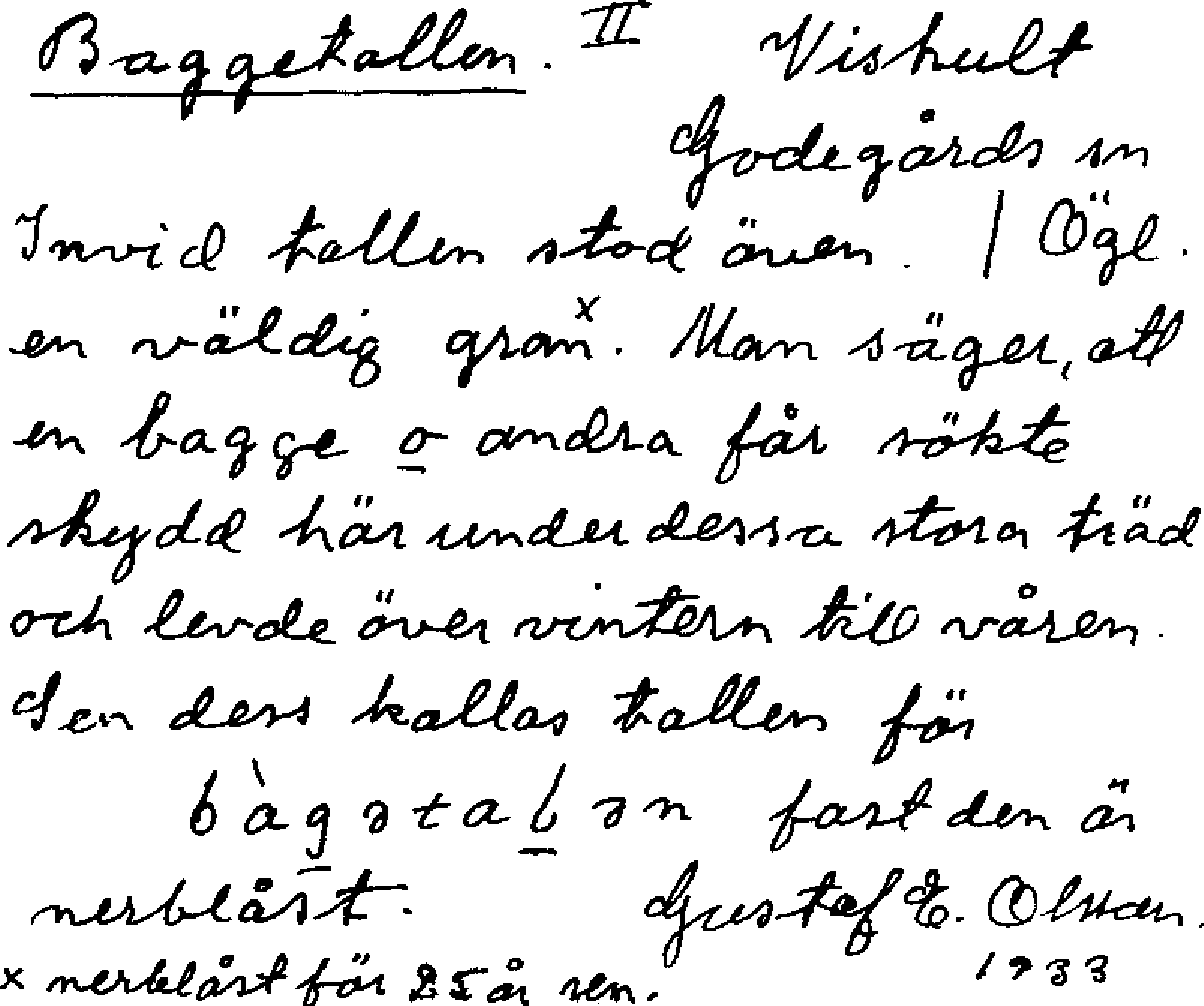 Baggetallen. II Viskult
Godegårds sn
Invid tallen stod även. | Ögl.
en väldig gran x. Man säger, att
en bagge o andra får sökte
skydd här under dessa stora träd
och levde över vintern till våren.
Sen dess kallas tallen för
bàgətaɭən fast den är
nerblåst. Gustaf E. Olsson.
x nerblåst för 25 år sen. 1933